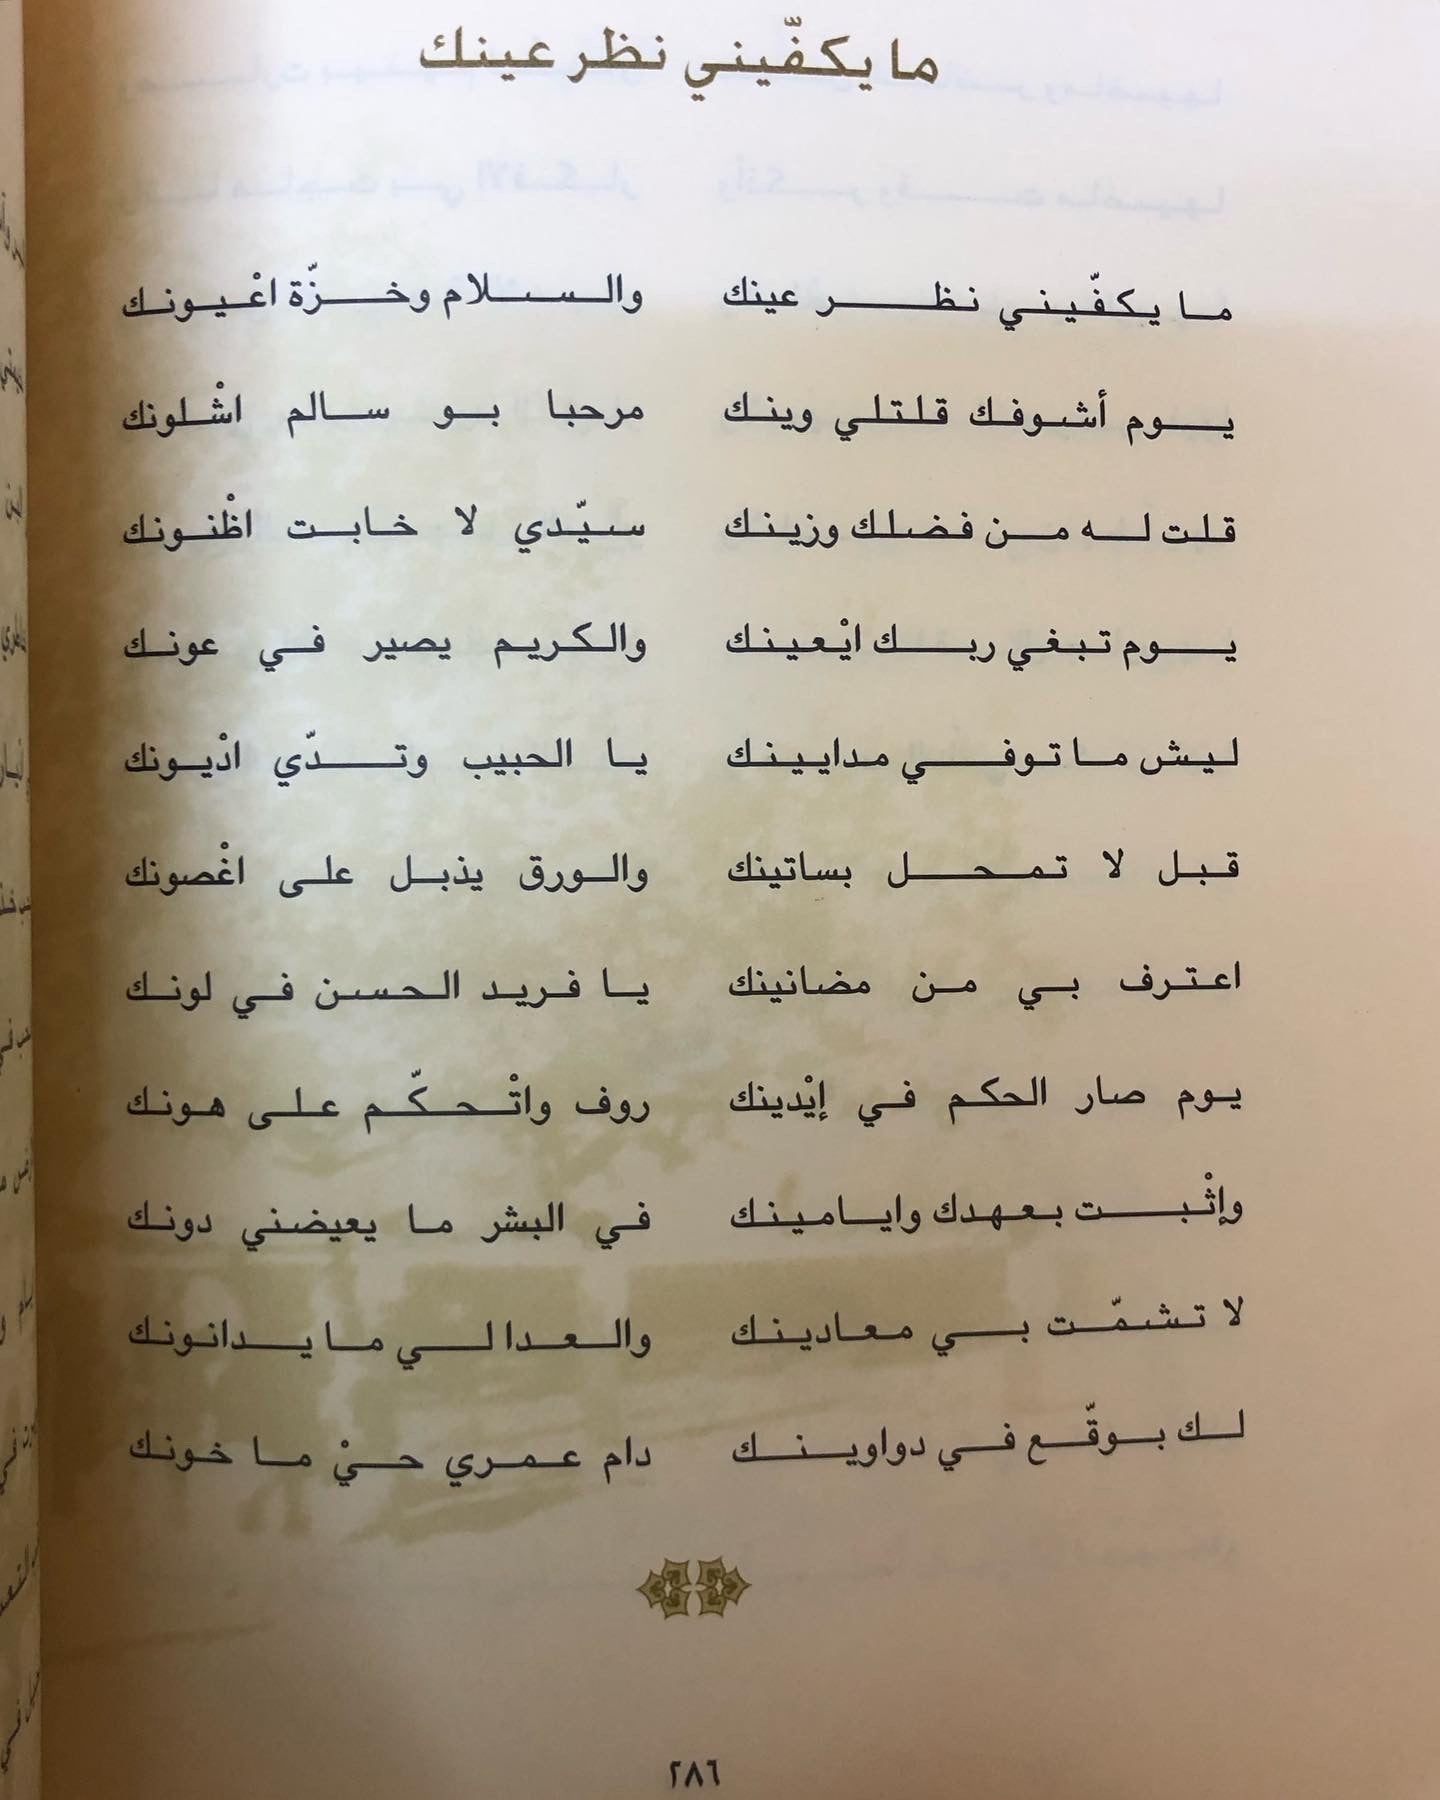 ما يكفّيني نظر عينك
ما يكفّيني نظر عينك والسلام وخزّة اعْيونك
يوم أشوفك قلتلي وينك مرحبا بو سالم اشْلونك
قلت له من فضلك وزينك سيّدي لا خابت اظْنونك
يوم تبغي ربك ايْعينك والكريم يصير في عونك
ليش ما توفي مدايينك يا الحبيب وتدّي ادْيونك
قبل لا تمحل بساتينك والورق يذبل على اغْصونك
اعترف بي من مضانينك يا فريد الحسن في لونك
يوم صار الحكم في إيْدينك روف واتْحكّم على هونك
وإثْبت بعهدك وايامينك في البشر ما يعيضني دونك
لا تشمّت بي معادينك والعدا لي ما يدانونك
لك بوقّع في دواوينك دام عمري حيْ ما خونك
٢٨٦